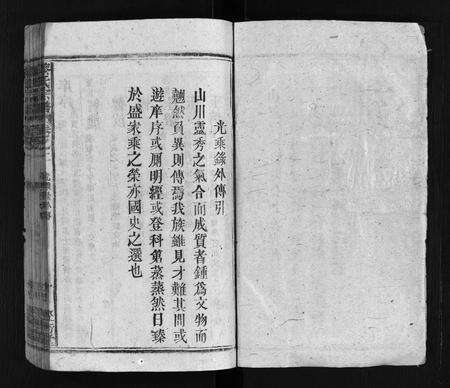 光乘錄外傳引
山川靈秀之氣合而成質者鍾爲文物而
翹然負異則傳焉我族雖見才難其間或
遊庠序或厠明經或登科第蒸蒸然日臻
於盛家乘之榮亦國史之選也